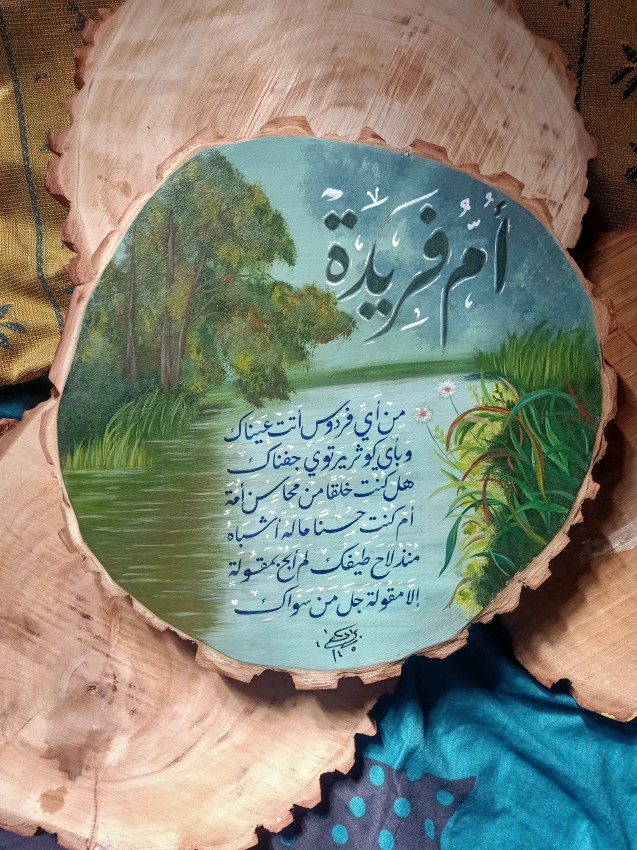 أُمُّ فَرِيْدَة
من أي فردوس أتت عيناك
وبأي كوثر يرتوي جفناك
هل كنت خلقا من محاسن أمة
أم كنت حسنا ماله أشباه
منذ لاح طيفك لم أبح بمقولة
إلا مقولة جل من سواك